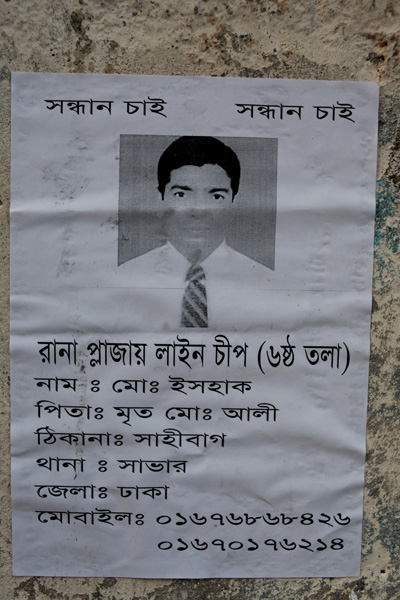 সন্ধান চাই সন্ধান চাই
রানা প্লাজায় লাইন চীপ (৬ষ্ঠ তলা)
নাম ঃ মোঃ ইসহাক
পিতাঃ মৃত মোঃ আলী
ঠিকানাঃ সাহীবাগ
থানা ঃ সাভার
জেলাঃ ঢাকা
মোবাইলঃ ০১৬৭৬৮৬৮৪২৬
০১৬৭০১৭৬২১৪